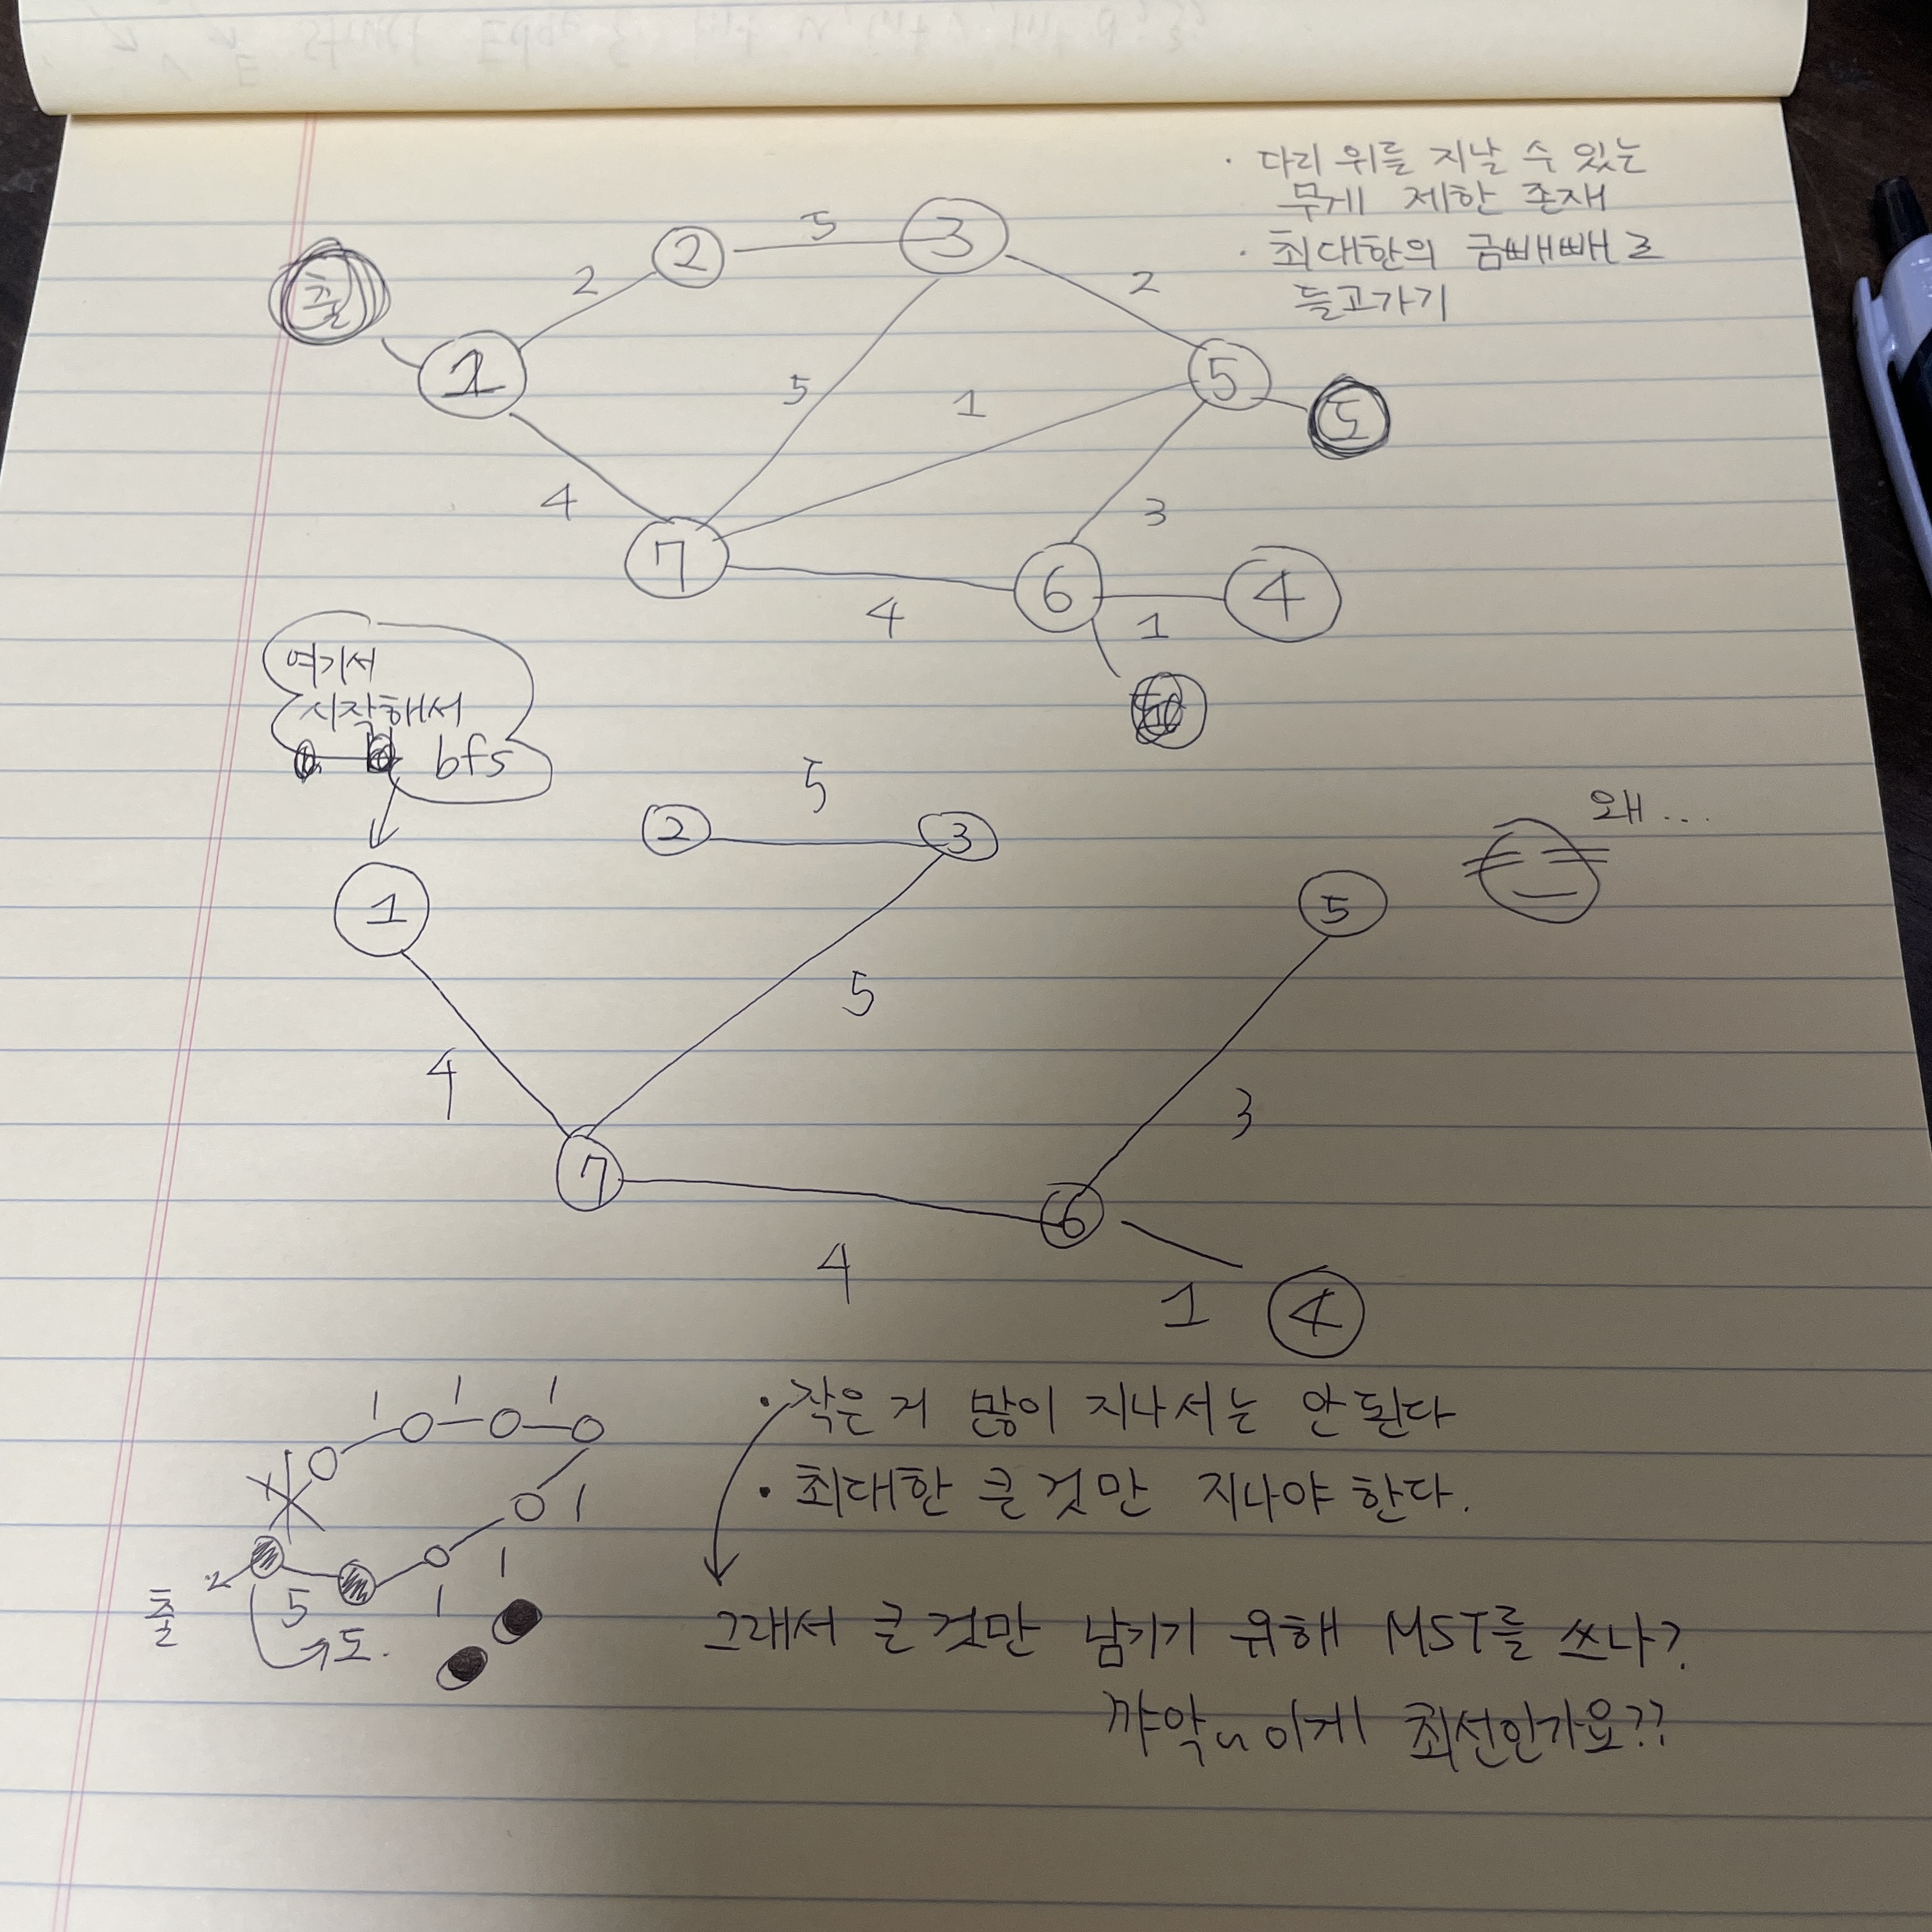 · 다리 위를 지날 수 있는
무게 제한 존재
· 최대한의 금빼빼로
들고가기
출
1
2
2
5
3
2
5
도
5
1
4
7
3
4
6
1
4
여기서
시작해서
bfs
5
2
3
왜...
1
5
5
4
3
7
6
4
1
4
1 1 1
1
1
1
2
5
출
도.
· 작은거 많이 지나서는 안된다
· 최대한 큰것만 지나야한다.
그래서 큰것만 남기기 위해 MST를 쓰나?
꺄악~ 이게 최선인가요??